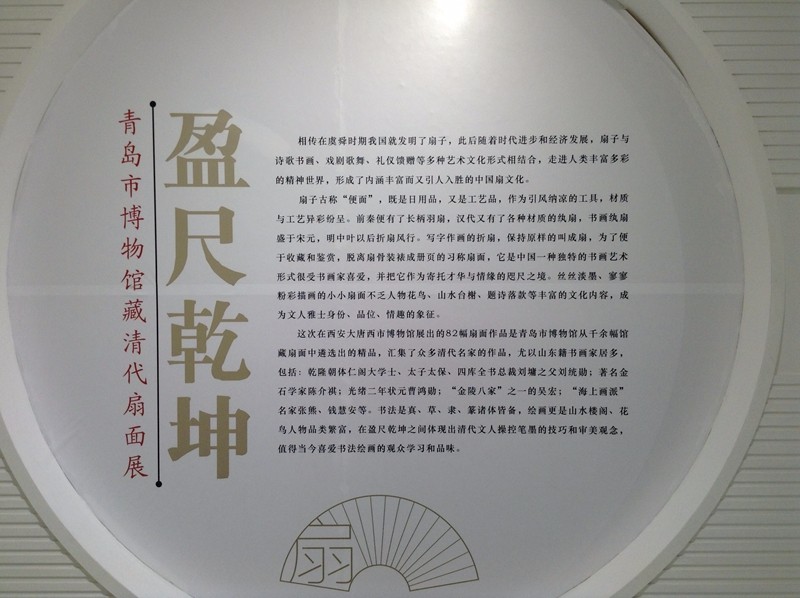 盈尺乾坤
青岛市博物馆藏清代扇面展
相传在虞舜时期我国就发明了扇子，此后随着时代进步和经济发展，扇子与
诗歌书画、戏剧歌舞、礼仪馈赠等多种艺术文化形式相结合，走进人类丰富多彩
的精神世界，形成了内涵丰富而又引人入胜的中国扇文化。
扇子古称“便面”，既是日用品，又是工艺品，作为引风纳凉的工具，材质
与工艺异彩纷呈。前秦便有了长柄羽扇，汉代又有了各种材质的纨扇，书画纨扇
盛于宋元，明中叶以后折扇风行。写字作画的折扇，保持原样的叫成扇，为了便
于收藏和鉴赏，脱离扇骨装裱成册页的习称扇面，它是中国一种独特的书画艺术
形式很受书画家喜爱，并把它作为寄托才华与情缘的咫尺之境。丝丝淡墨、寥寥
粉彩描画的小小扇面不乏人物花鸟、山水台榭、题诗落款等丰富的文化内容，成
为文人雅士身份、品位、情趣的象征。
这次在西安大唐西市博物馆展出的82幅扇面作品是青岛市博物馆从千余幅馆
藏扇面中遴选出的精品，汇集了众多清代名家的作品，尤以山东籍书画家居多，
包括：乾隆朝体仁阁大学士、太子太保、四库全书总裁刘墉之父刘统勋；著名金
石学家陈介祺；光绪二年状元曹鸿勋；“金陵八家”之一的吴宏；“海上画派”
名家张熊、钱慧安等。书法是真、草、隶、篆诸体皆备，绘画更是山水楼阁、花
鸟人物品类繁富，在盈尺乾坤之间体现出清代文人操控笔墨的技巧和审美观念，
值得当今喜爱书法绘画的观众学习和品味。
扇